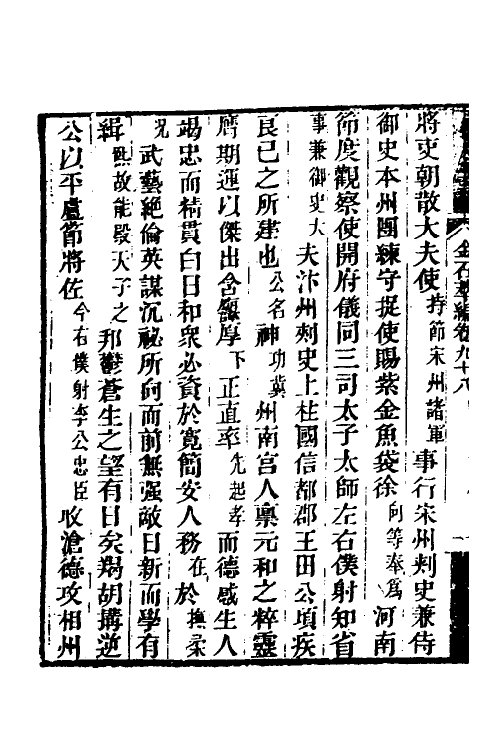 金石萃編卷九十八
將吏朝散大夫使持節宋州諸軍事行宋州刺史兼侍
御史本州團練守捉使賜紫金魚袋徐向等奉爲河南
節度觀察使開府儀同三司太子太師左右僕射知省
事兼御史大夫汴州刺史上柱國信都郡王田公頃疾
良已之所建也公名神功冀州南宮人稟元和之粹靈
膺期運以傑出含弘厚下正直率先起孝而德感生人
竭忠而精貫白日和衆必資於寬簡安人務在於撫柔
況武藝絕倫英謀沉祕所向而前無强敵日新而學有
緝熙故能殿天子之邦鬱蒼生之望有日矣羯胡搆逆
公以平盧節將佐今右僕射李公忠臣收滄德攻相州